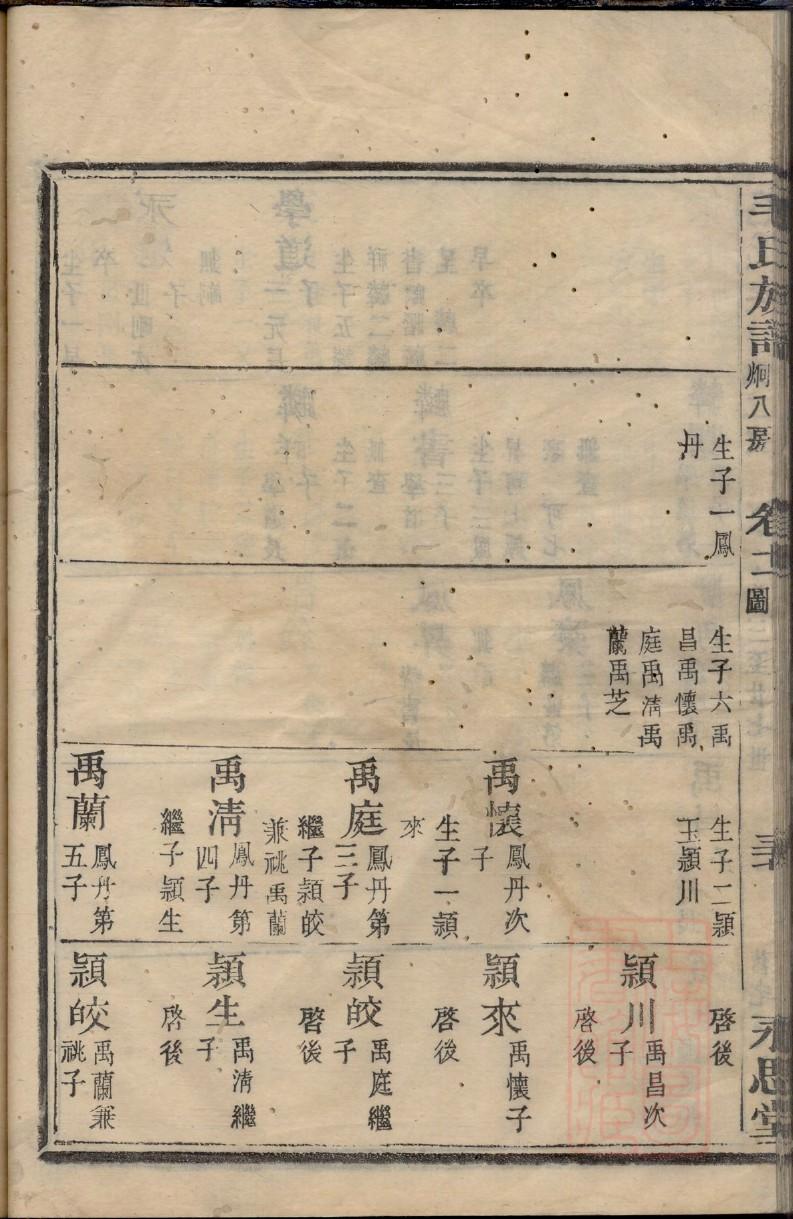 毛氏族譜
炯八房
卷十二
圖
永思堂
生子一鳳
丹
生子六禹
昌禹懷禹
庭禹清禹
蘭禹芝
生子二穎
玉穎川
禹懷
鳳丹次
子
生子一穎
來
禹庭
鳳丹第
三子
繼子穎皎
兼祧禹蘭
禹清
鳳丹第
四子
繼子穎生
禹蘭
鳳丹第
五子
啓後
穎川
禹昌次
子
啓後
穎來
禹懷子
啓後
穎皎
禹庭繼
子
啓後
穎生
禹清繼
子
啓後
穎皎
禹蘭兼
祧子